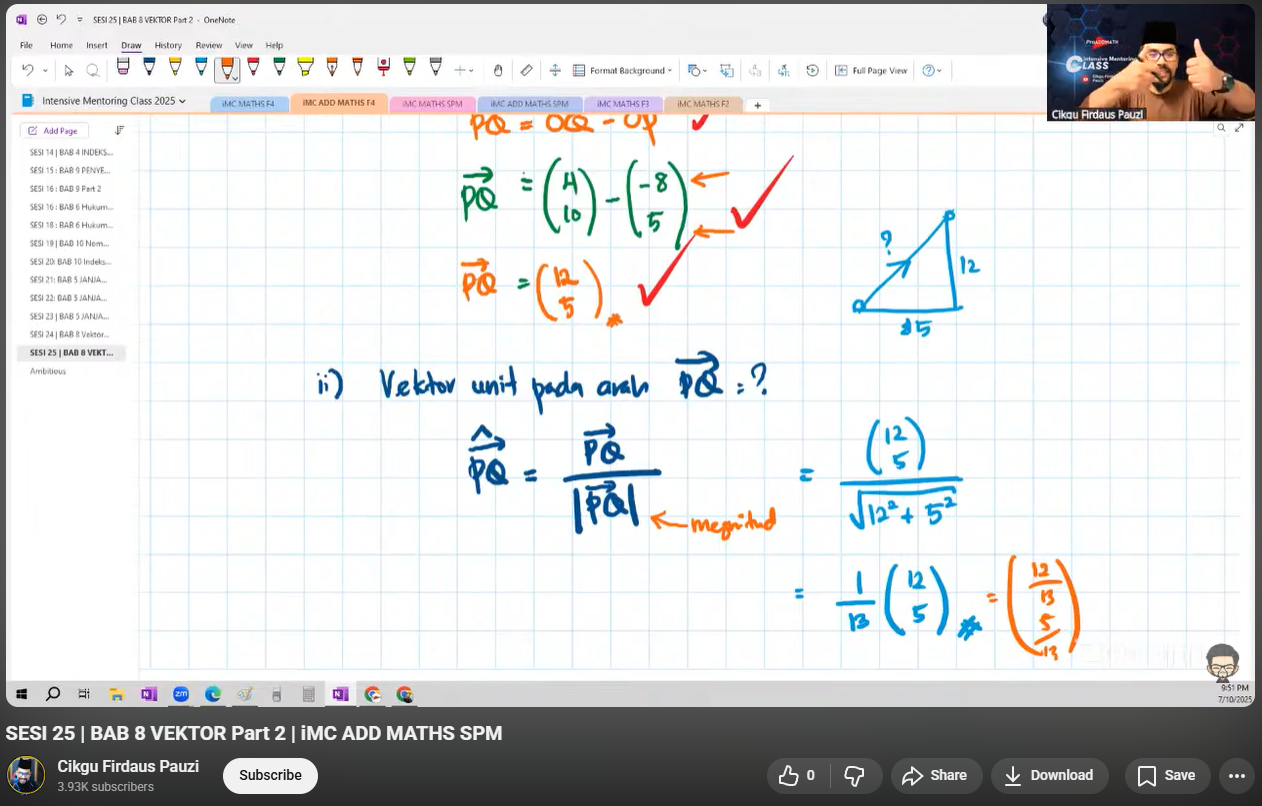 SESI 25 | BAB 8 VEKTOR Part 2 - OneNote
File Home Insert Draw History Review View Help
Format Background
Full Page View
Intensive Mentoring Class 2025
iMC MATHS F4
iMC ADD MATHS F4
iMC MATHS SPM
iMC ADD MATHS SPM
iMC MATHS F3
iMC MATHS F2
+
ProADDMATH
Intensive Mentoring
CLASS
Cikgu Firdaus Pauzi
Add Page
SESI 14 | BAB 4 INDEKS...
SESI 15 : BAB 9 PENYE...
SESI 16 : BAB 9 Part 2
SESI 16 : BAB 6 Hukum...
SESI 18 : BAB 6 Hukum...
SESI 19 | BAB 10 Nom...
SESI 20: BAB 10 Indeks...
SESI 21: BAB 5 JANJA...
SESI 22: BAB 5 JANJA...
SESI 23 | BAB 5 JANJA...
SESI 24 | BAB 8 Vektor...
SESI 25 | BAB 8 VEKT...
Ambitious
PQ = OQ - OP
PQ = (4 10) - (-8 5)
PQ = (12 5)
?
12
5
ii) Vektor unit pada arah PQ = ?
PQ = PQ / |PQ|
megnitud
= (12 5) / √12² + 5²
= 1/13 (12 5) = (12/13 5/13)
zm
9:51 PM
7/10/2025
SESI 25 | BAB 8 VEKTOR Part 2 | iMC ADD MATHS SPM
Cikgu Firdaus Pauzi
3.93K subscribers
Subscribe
0
Share
Download
Save